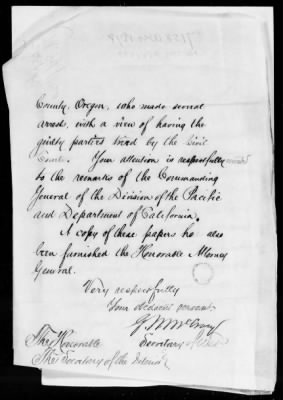 County, Oregon, who made several
arrests, with a view of having the
guilty parties tried by the Civil
Courts. Your attention is respectfully invited
to the remarks of the Commanding
General of the Division of the Pacific
and Department of California.
A copy of these papers has also
been furnished the Honorable Attorney
General.
Very respectfully
Your obedient servant,
Geo W McCrary
Secretary of War
The Honorable
The Secretary of the Interior